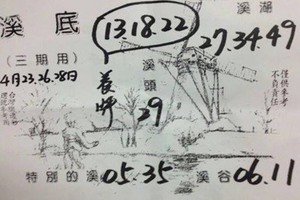 溪底
13.18.22
溪湖
27.34.49
(三期用)
4月23.26.28日
養師
溪頭
29
僅供參考
不負責任
特別的溪
05.35
溪谷
06.11